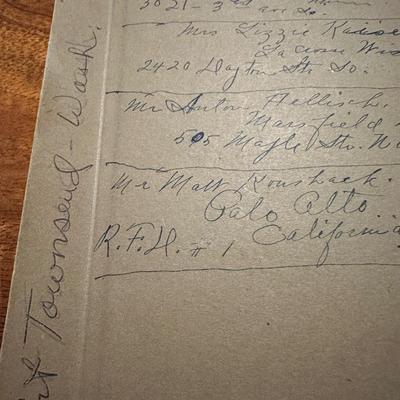 3021 - 3rd ave So.
Mrs Lizzie Kaise
La Crosse Wis
2420 Dayton Str. So.
Mr Anton Hellisch.
Marsfield
505 Maple Str. N
Mr Matt Koushack.
Palo Alto.
R.F.D. # 1 California
Townsend - Wash.